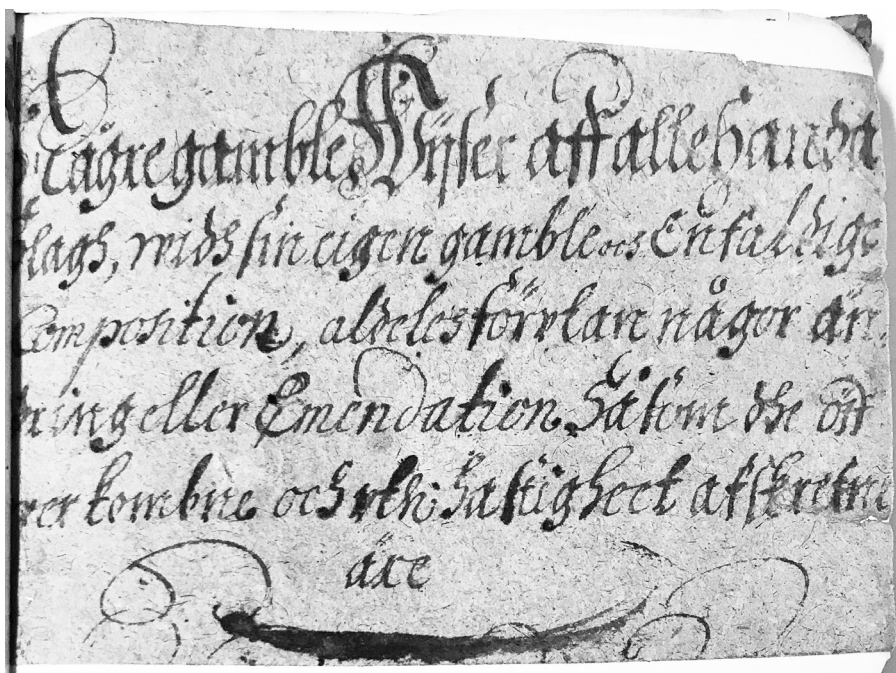 Någre gamble Wijser aff allehanda
slagh, widh sin eigen gamble och Enfaldige
Composition, aldeles förvtan någor än
dring eller Emendation, såsom dhe öff
ver kombne och vthi hastigheet afskrefne
äre